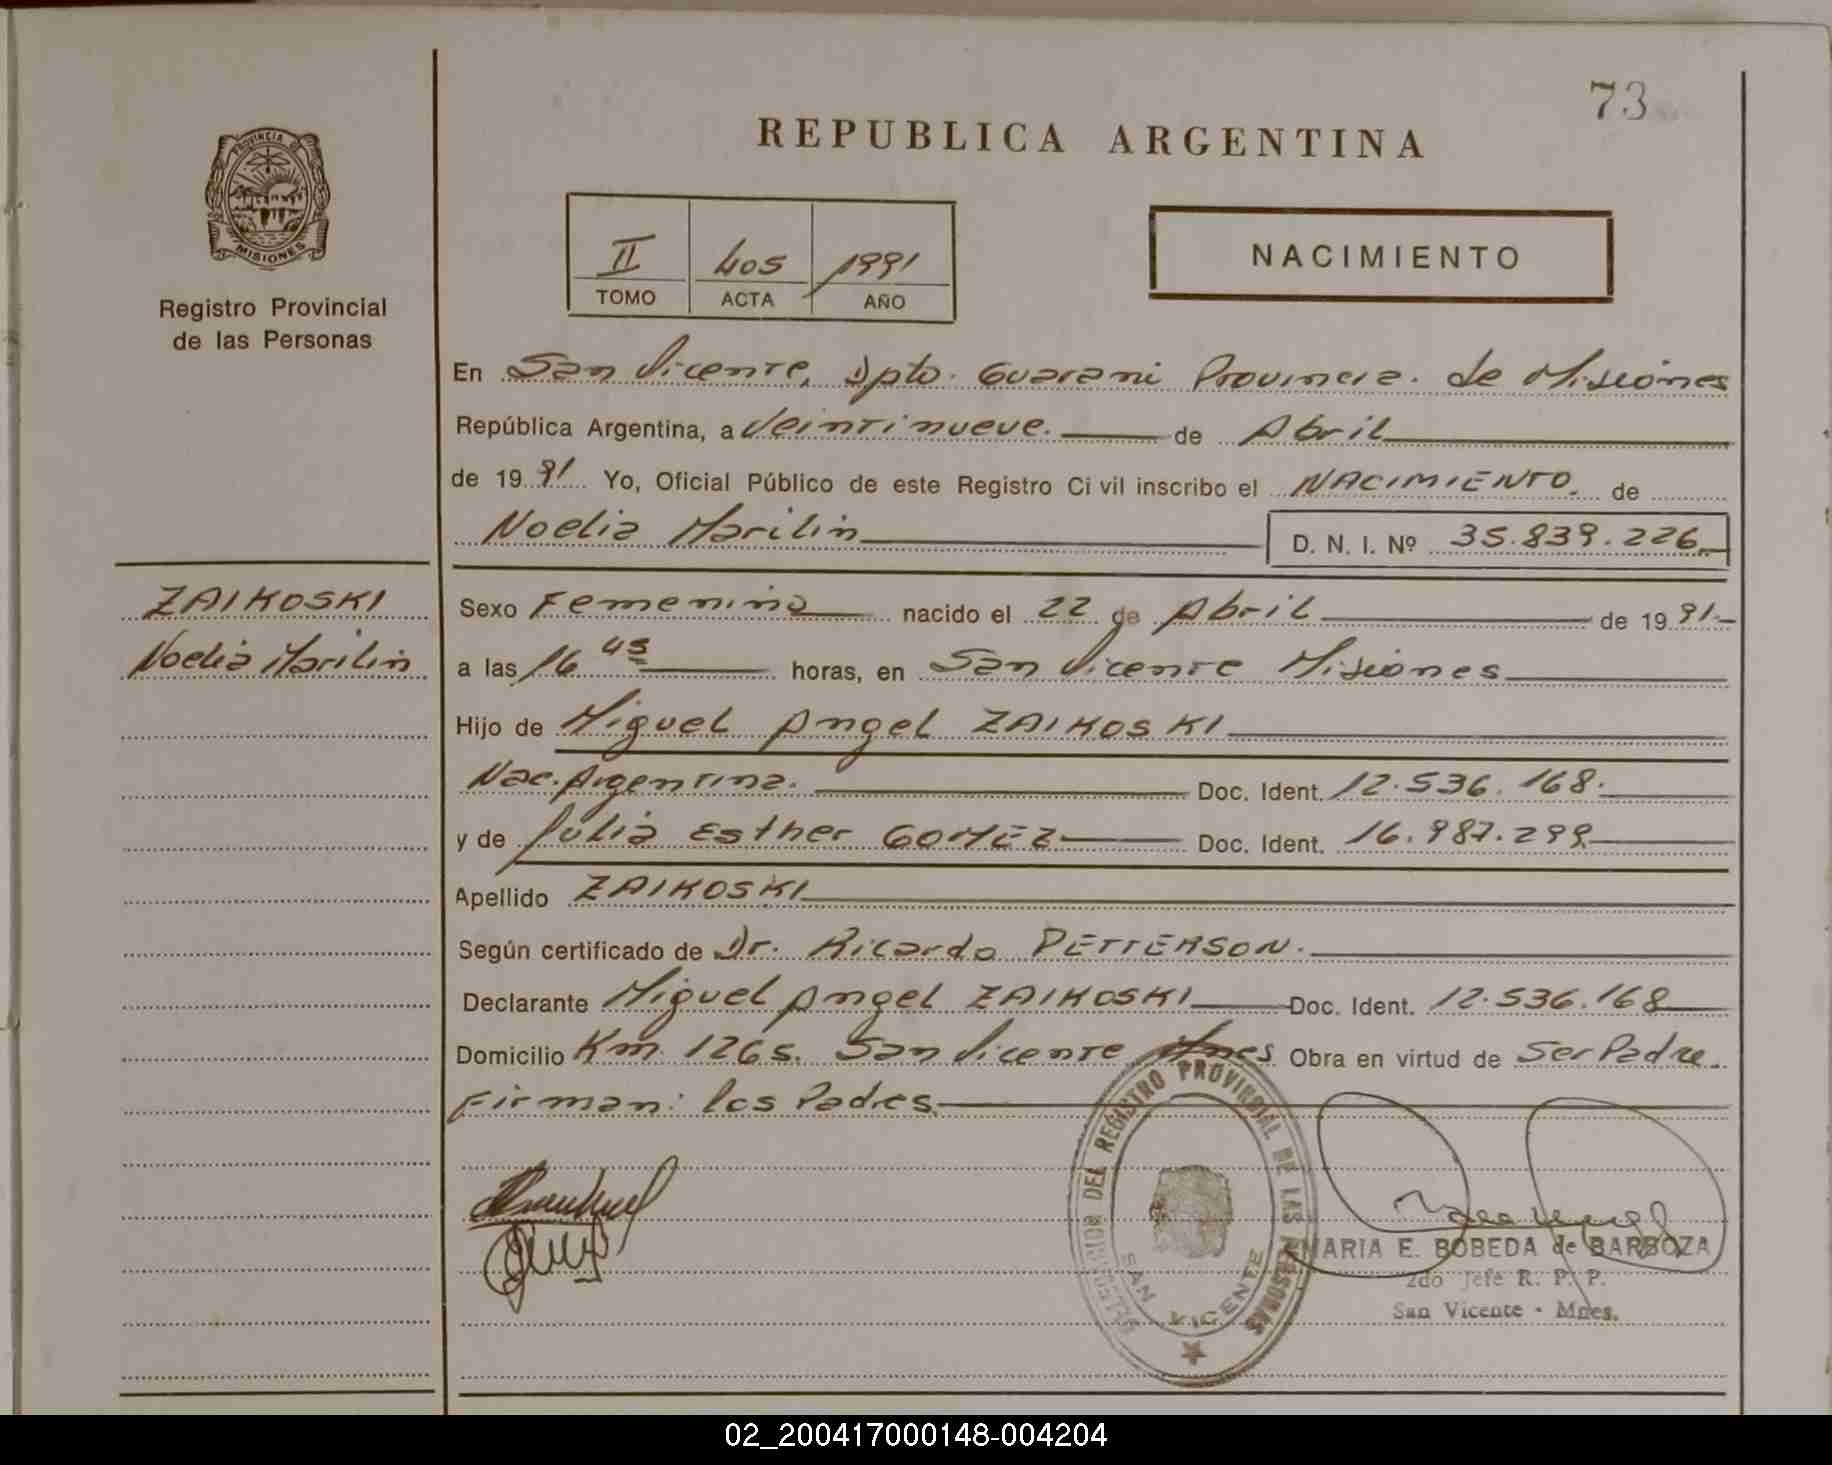 73
REPUBLICA ARGENTINA
PROVINCIA DE
MISIONES
Registro Provincial
de las Personas
II 405 1991
TOMO ACTA AÑO
NACIMIENTO
En San Vicente, Dpto. Guarani Provincia. de Misiones
República Argentina, a Veintinueve. de Abril
de 1991 Yo, Oficial Público de este Registro Civil inscribo el NACIMIENTO. de
Noelia Marilin D. N. I. Nº 35.839.226
ZAIKOSKI
Noelia Marilin
Sexo Femenino nacido el 22 de Abril de 1991
a las 16 45 horas, en San Vicente Misiones
Hijo de Miguel Angel ZAIKOSKI
Nac. Argentina. Doc. Ident. 12.536.168.
y de Julia Esther GOMEZ Doc. Ident. 16.987.299
Apellido ZAIKOSKI
Según certificado de Dr. Ricardo PETTERSON.
Declarante Miguel Angel ZAIKOSKI Doc. Ident. 12.536.168
Domicilio Km 1265. San Vicente Mnes Obra en virtud de Ser Padre.
Firman: los Padres.
DEL REGISTRO PROVINCIAL DE LAS PERSONAS
SAN VICENTE
MARIA E. BOBEDA de BARBOZA
2do Jefe R. P. P.
San Vicente - Mnes.
02_200417000148-004204